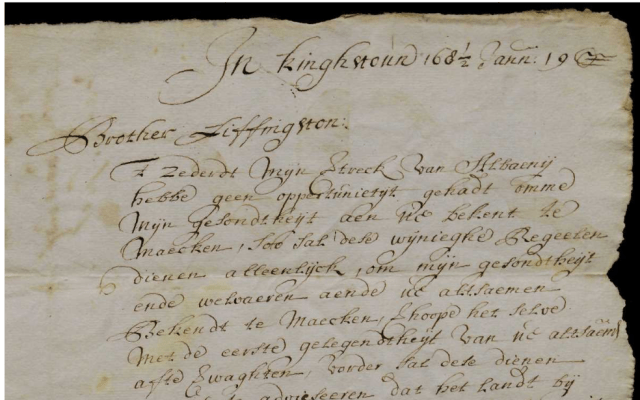 In kinghstoún 168½ Jann: 19
Brother Liffingston:
T Zederdt Mijn Streck van Albaenij
hebbe geen opportúnietyt gehadt omme
Mijn gesondtheijt aen úE bekent te
Maecken, Soo Sal dese wijnieghe Regeelen
dienen alleenlijck, om mijn gesondtheijt
ende welvaeren aende úE altsaemen
Bekendt te Maecken, Ihoope het selve
Met de eerste gelegendtheijt van úE altsaem
afte Swaghten, vorder Sal dese dienen
adviseeren dat het Landt bij